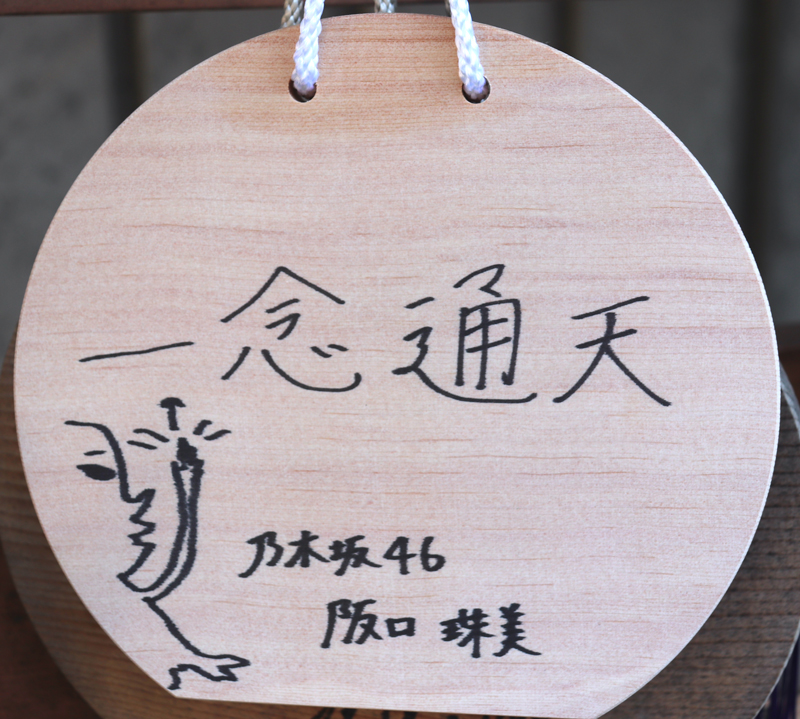 一念通天
乃木坂46
阪口珠美